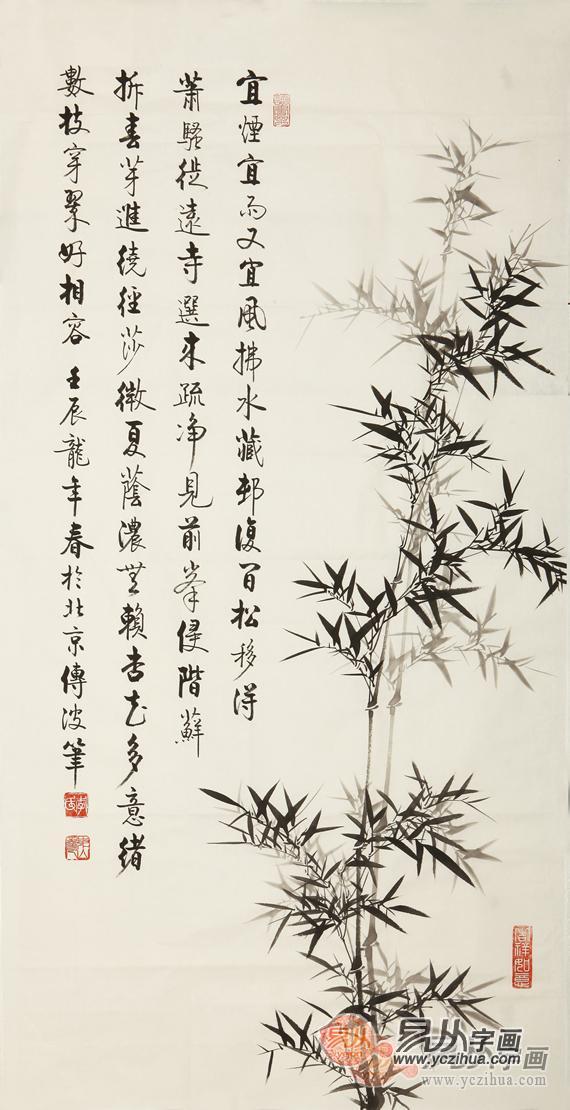 宜煙宜雨又宜風拂水藏邨復間松移得
蕭騷從遠寺選來疏淨見前峯侵階蘚
拆春芽進繞徑莎微夏蔭濃無賴杏花多意緒
數枝穿翠好相容 壬辰龍年春於北京傳波筆
吉祥如意
易从字画
www.yczihua.com
www.yczihua.com